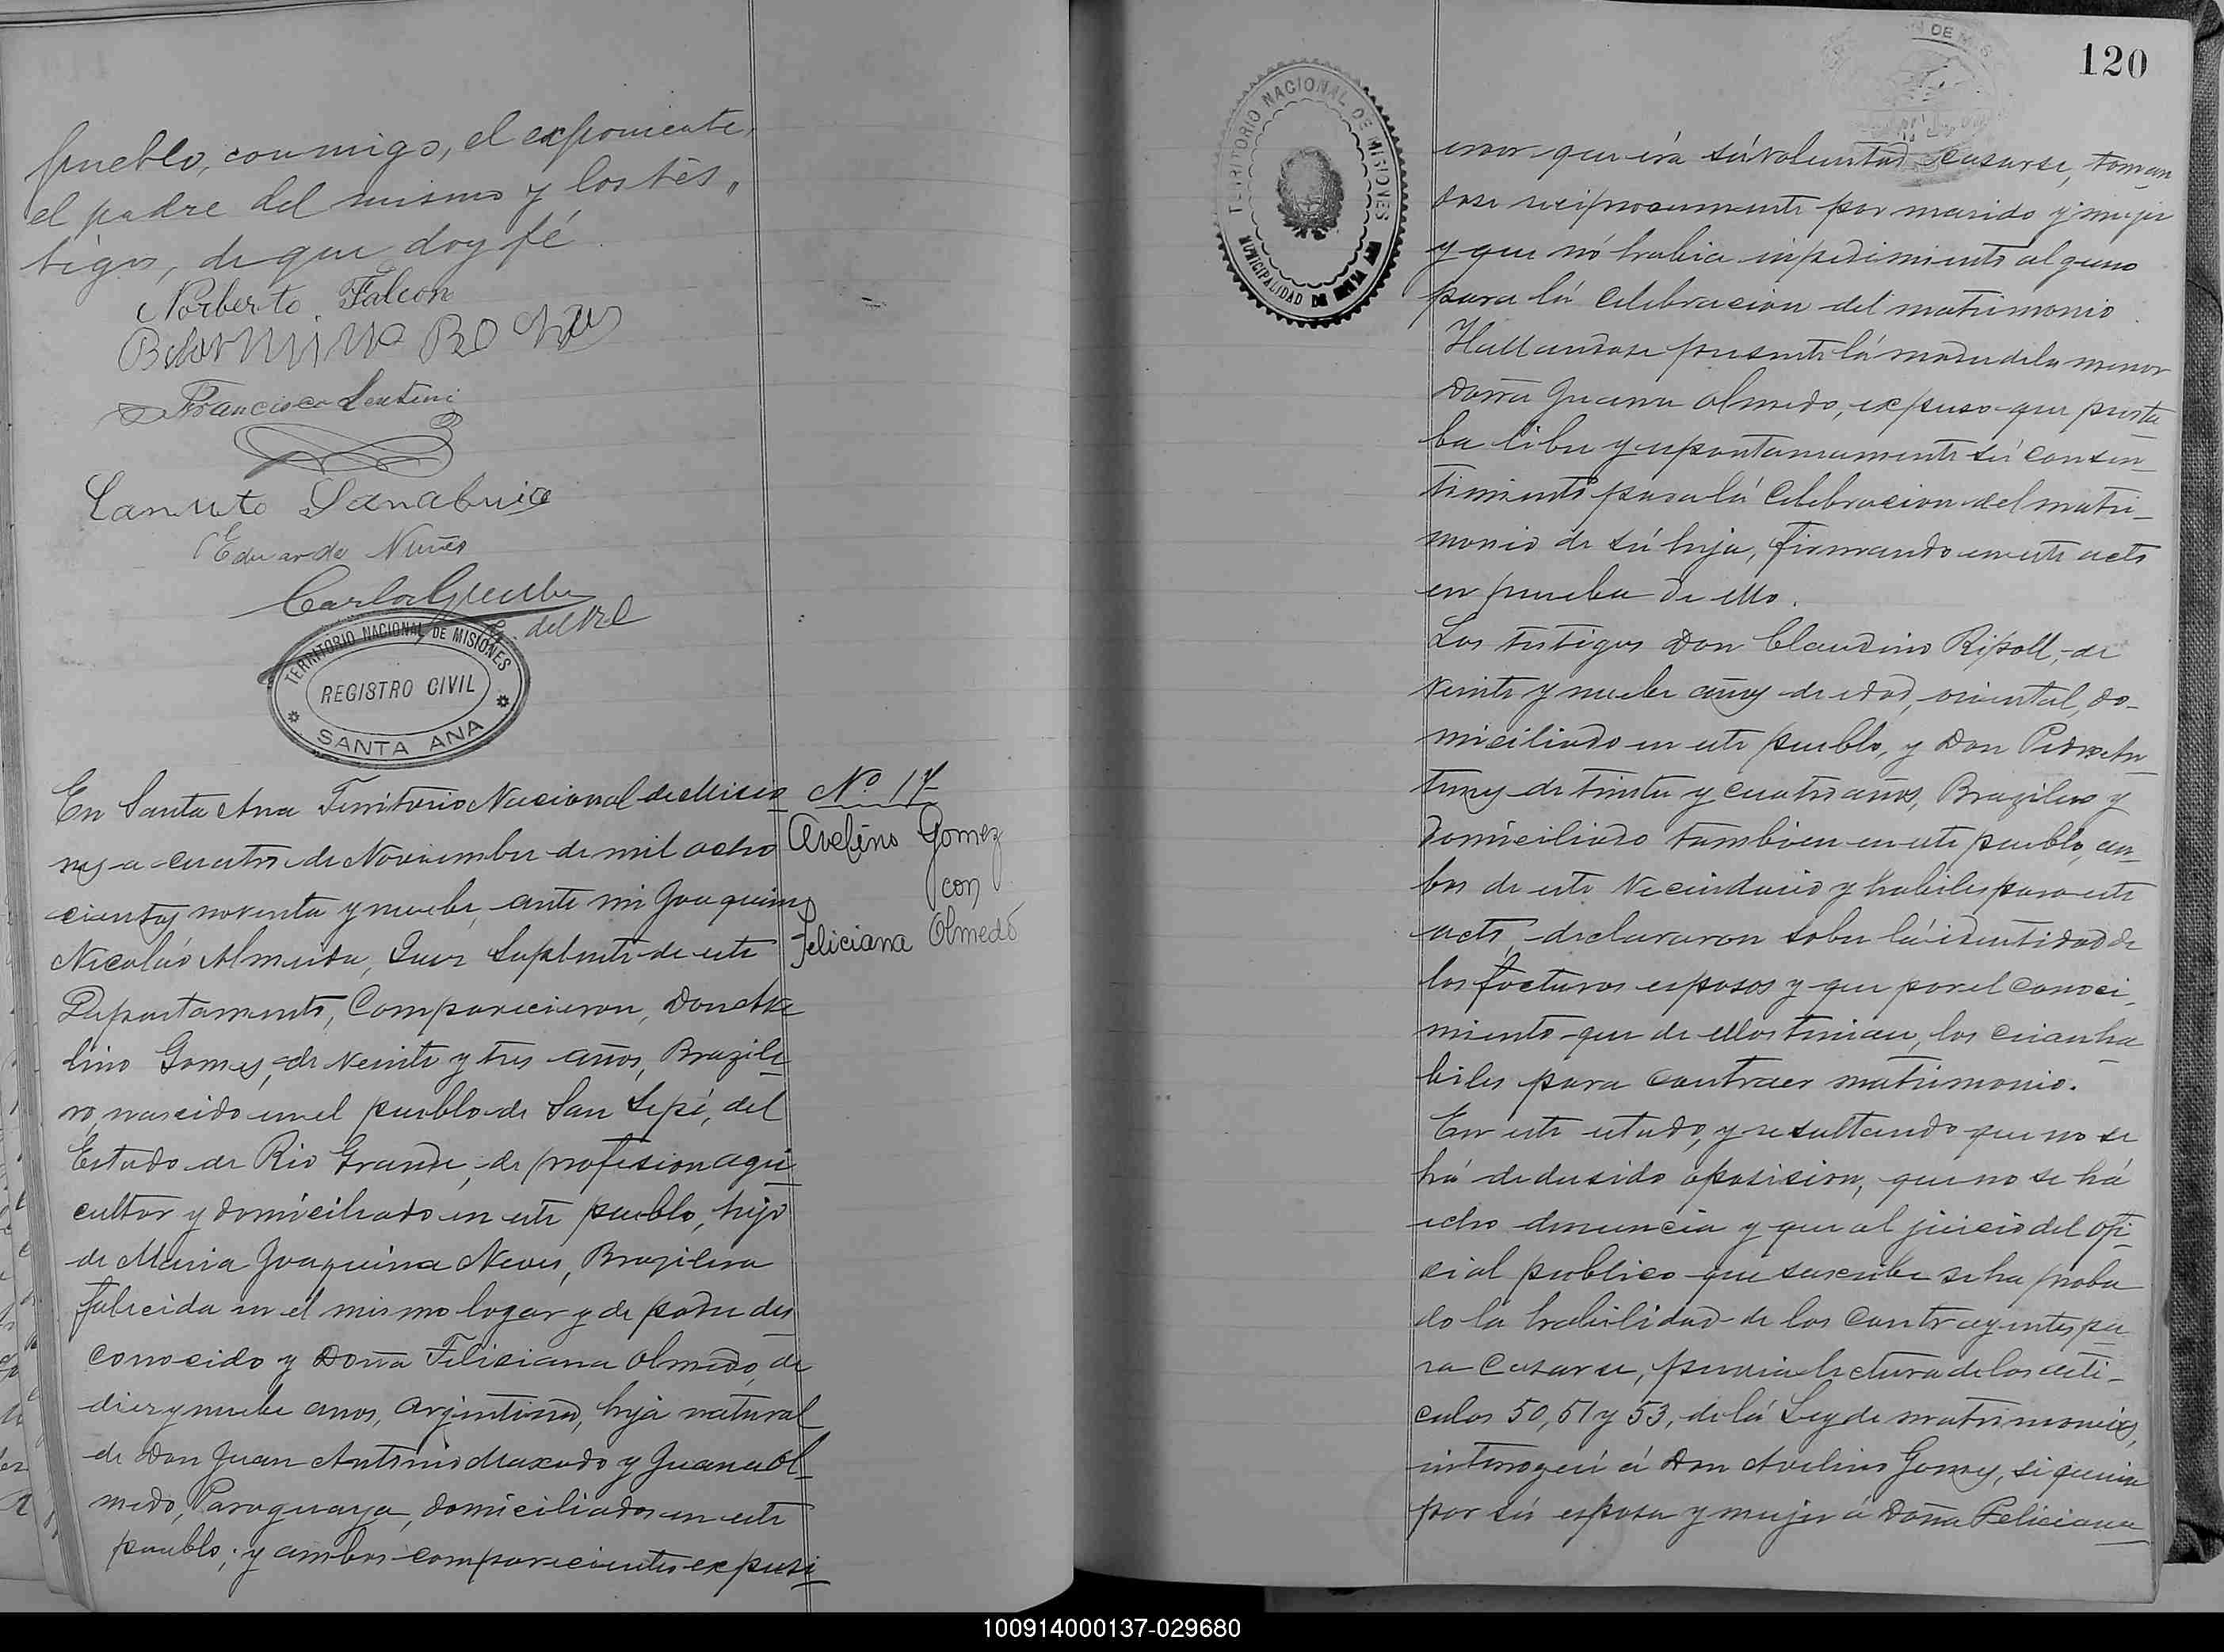 pueblo, conmigo, el exponente,
el padre del mismo y los tes„
tigos, de que doy fé.
Norberto Falcon
Francisco Lentini
Canuto Sanabria
Eduardo Nuñes
Carlos
del R C
TERRITORIO NACIONAL DE MISIONES
REGISTRO CIVIL
SANTA ANA
En Santa Ana Territorio Nacional de Misio
nes a cuatro de Noviembre de mil ocho
cientos noventa y nuebe, ante mi Joaquim
Nicolás Almeida, Juez Suplente de este
Departamento, Comparecieron, Don Ave
lino Gomes, de veinte y tres años, Brazile
ro, nascido en el pueblo de San Sepé, del
Estado de Rio Grande, de profesion agri
cultor y domiciliado en este pueblo, hijo
de Maria Joaquina Neves, Brazilera
falecida en el mismo logar y de padre des
conocido y Doña Felisiana Olmedo, de
diez y nuebe anos, argentina, hija natural
de Don Juan Antonio Maxado y Juana Ol
medo, Paraguaya, domiciliados en este
pueblo; y ambos comparecientes expusi
Nº 17
Avelino Gomez
con
Feliciana Olmedo
120
TERRITORIO NACIONAL DE MISIONES
MUNICIPALIDAD DE SANTA ANA
eron que éra sú voluntad casarse, toman
dose reciprocamente por marido y mujer
y que nó habia inpedimiento alguno
para lá celebracion del matrimonio.
Hallandose presente lá madre de la menor
Doña Juana Olmedo, expuso que presta
ba libre y espontaneamente sú consen
timiento para lá Celebracion del matri
monio de sú hija, firmando en este acto
en prueba de ello.
Los testigos Don Claudino Ripoll, de
veinte y nuebe años de edad, oriental, do-
miciliado en este pueblo, y Don Pedro An
tunes de trinta y cuatro años, Brazilero y
domiciliado tambien en este pueblo, am
bos de este vecindario y habiles para este
acto, declararon sobre lá identidad de
los focturos esposos y que por el conoci
miento que de ellos tenian, los crian ha
biles para contraer matrimonio.
En este estado, y resultando que no se
há dedusido oposision, que no se há
echo denuncia y que al juicio del ofi
cial publico que suscribe se ha proba
do la habilidad de los contrayentes pa
ra casarse, previa lectura de los arti-
culos 50, 51 y 53, de lá Ley de matrimonios,
interrogué á Don Avelino Gomes, si queria
por sú esposa y mujer á Doña Feliciana
100914000137-029680